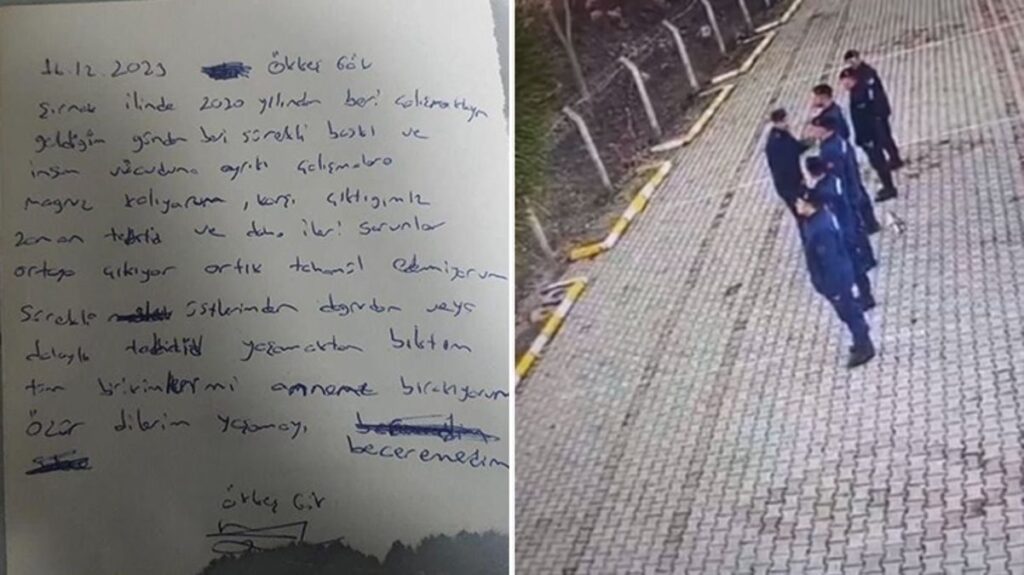 16.12.2023 Ökkeş Gök
Şırnak ilinde 2020 yılından beri çalışmaktayım
geldiğim günden beri sürekli baskı ve
insan vücuduna aykırı çalışmalara
magruz kalıyorum, karşı çıktığımız
zaman tehtid ve daha ileri sorunlar
ortaya çıkıyor artık tahamül edemiyorum
Sürekli üstlerimden doğrudan veya
dolaylı tehtid yaşamaktan bıktım
tüm birikimlerimi anneme bırakıyorum
Özür dilerim yaşamayı
becerenedim
Ökkeş Gök